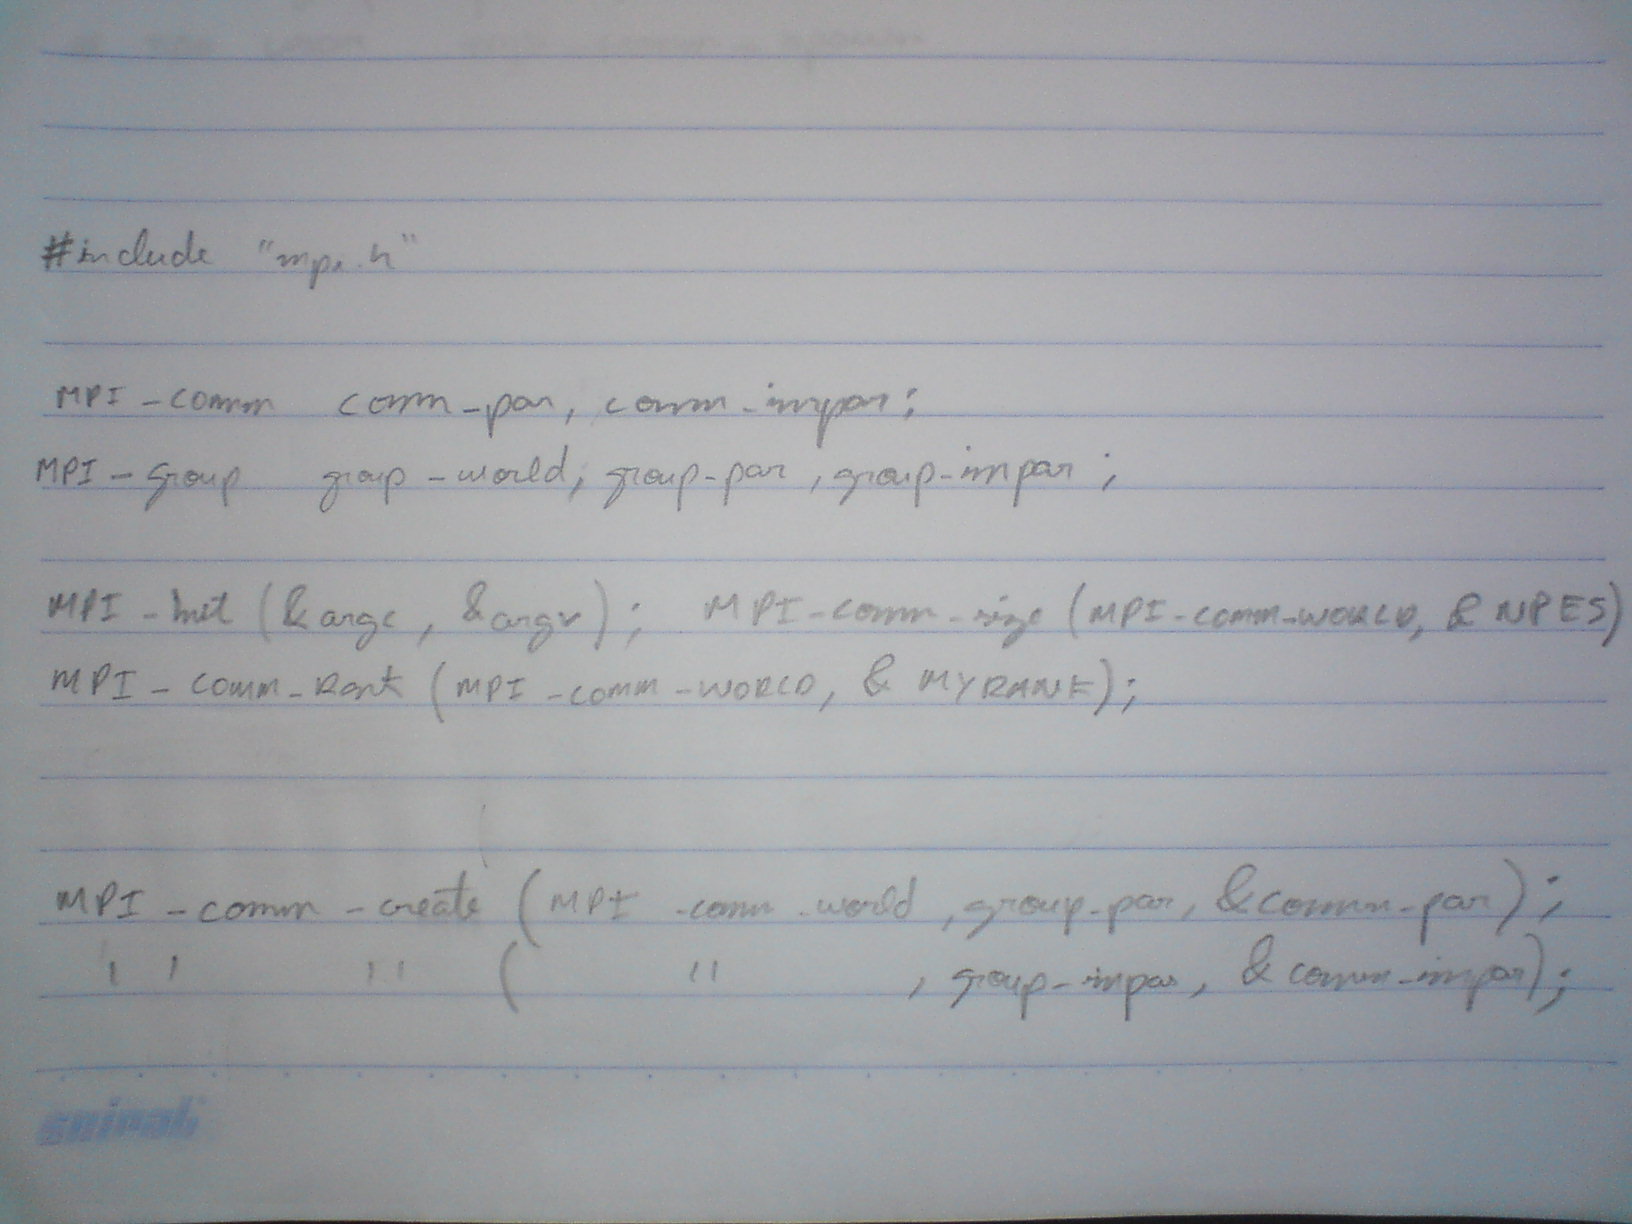 #include "mpi.h"
MPI_comm comm_par, comm_impar;
MPI_group group_world, group_par, group_impar;
MPI_Init (&argc, &argv); MPI_comm_size (MPI_comm_WORLD, & NPES)
MPI_comm_Rank (MPI_comm_WORLD, & MYRANK);
MPI_comm_create (MPI_comm_world, group_par, &comm_par);
" " ( " , group_impar, & comm_impar);
spiral